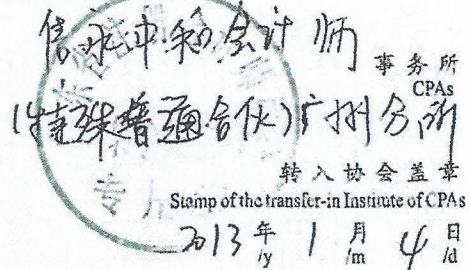 信永中和会计师
事务所
CPAs
(特殊普通合伙)广州分所
转入协会盖章
Stamp of the transfer-in Institute of CPAs
2013年1月4日
/y /m /d